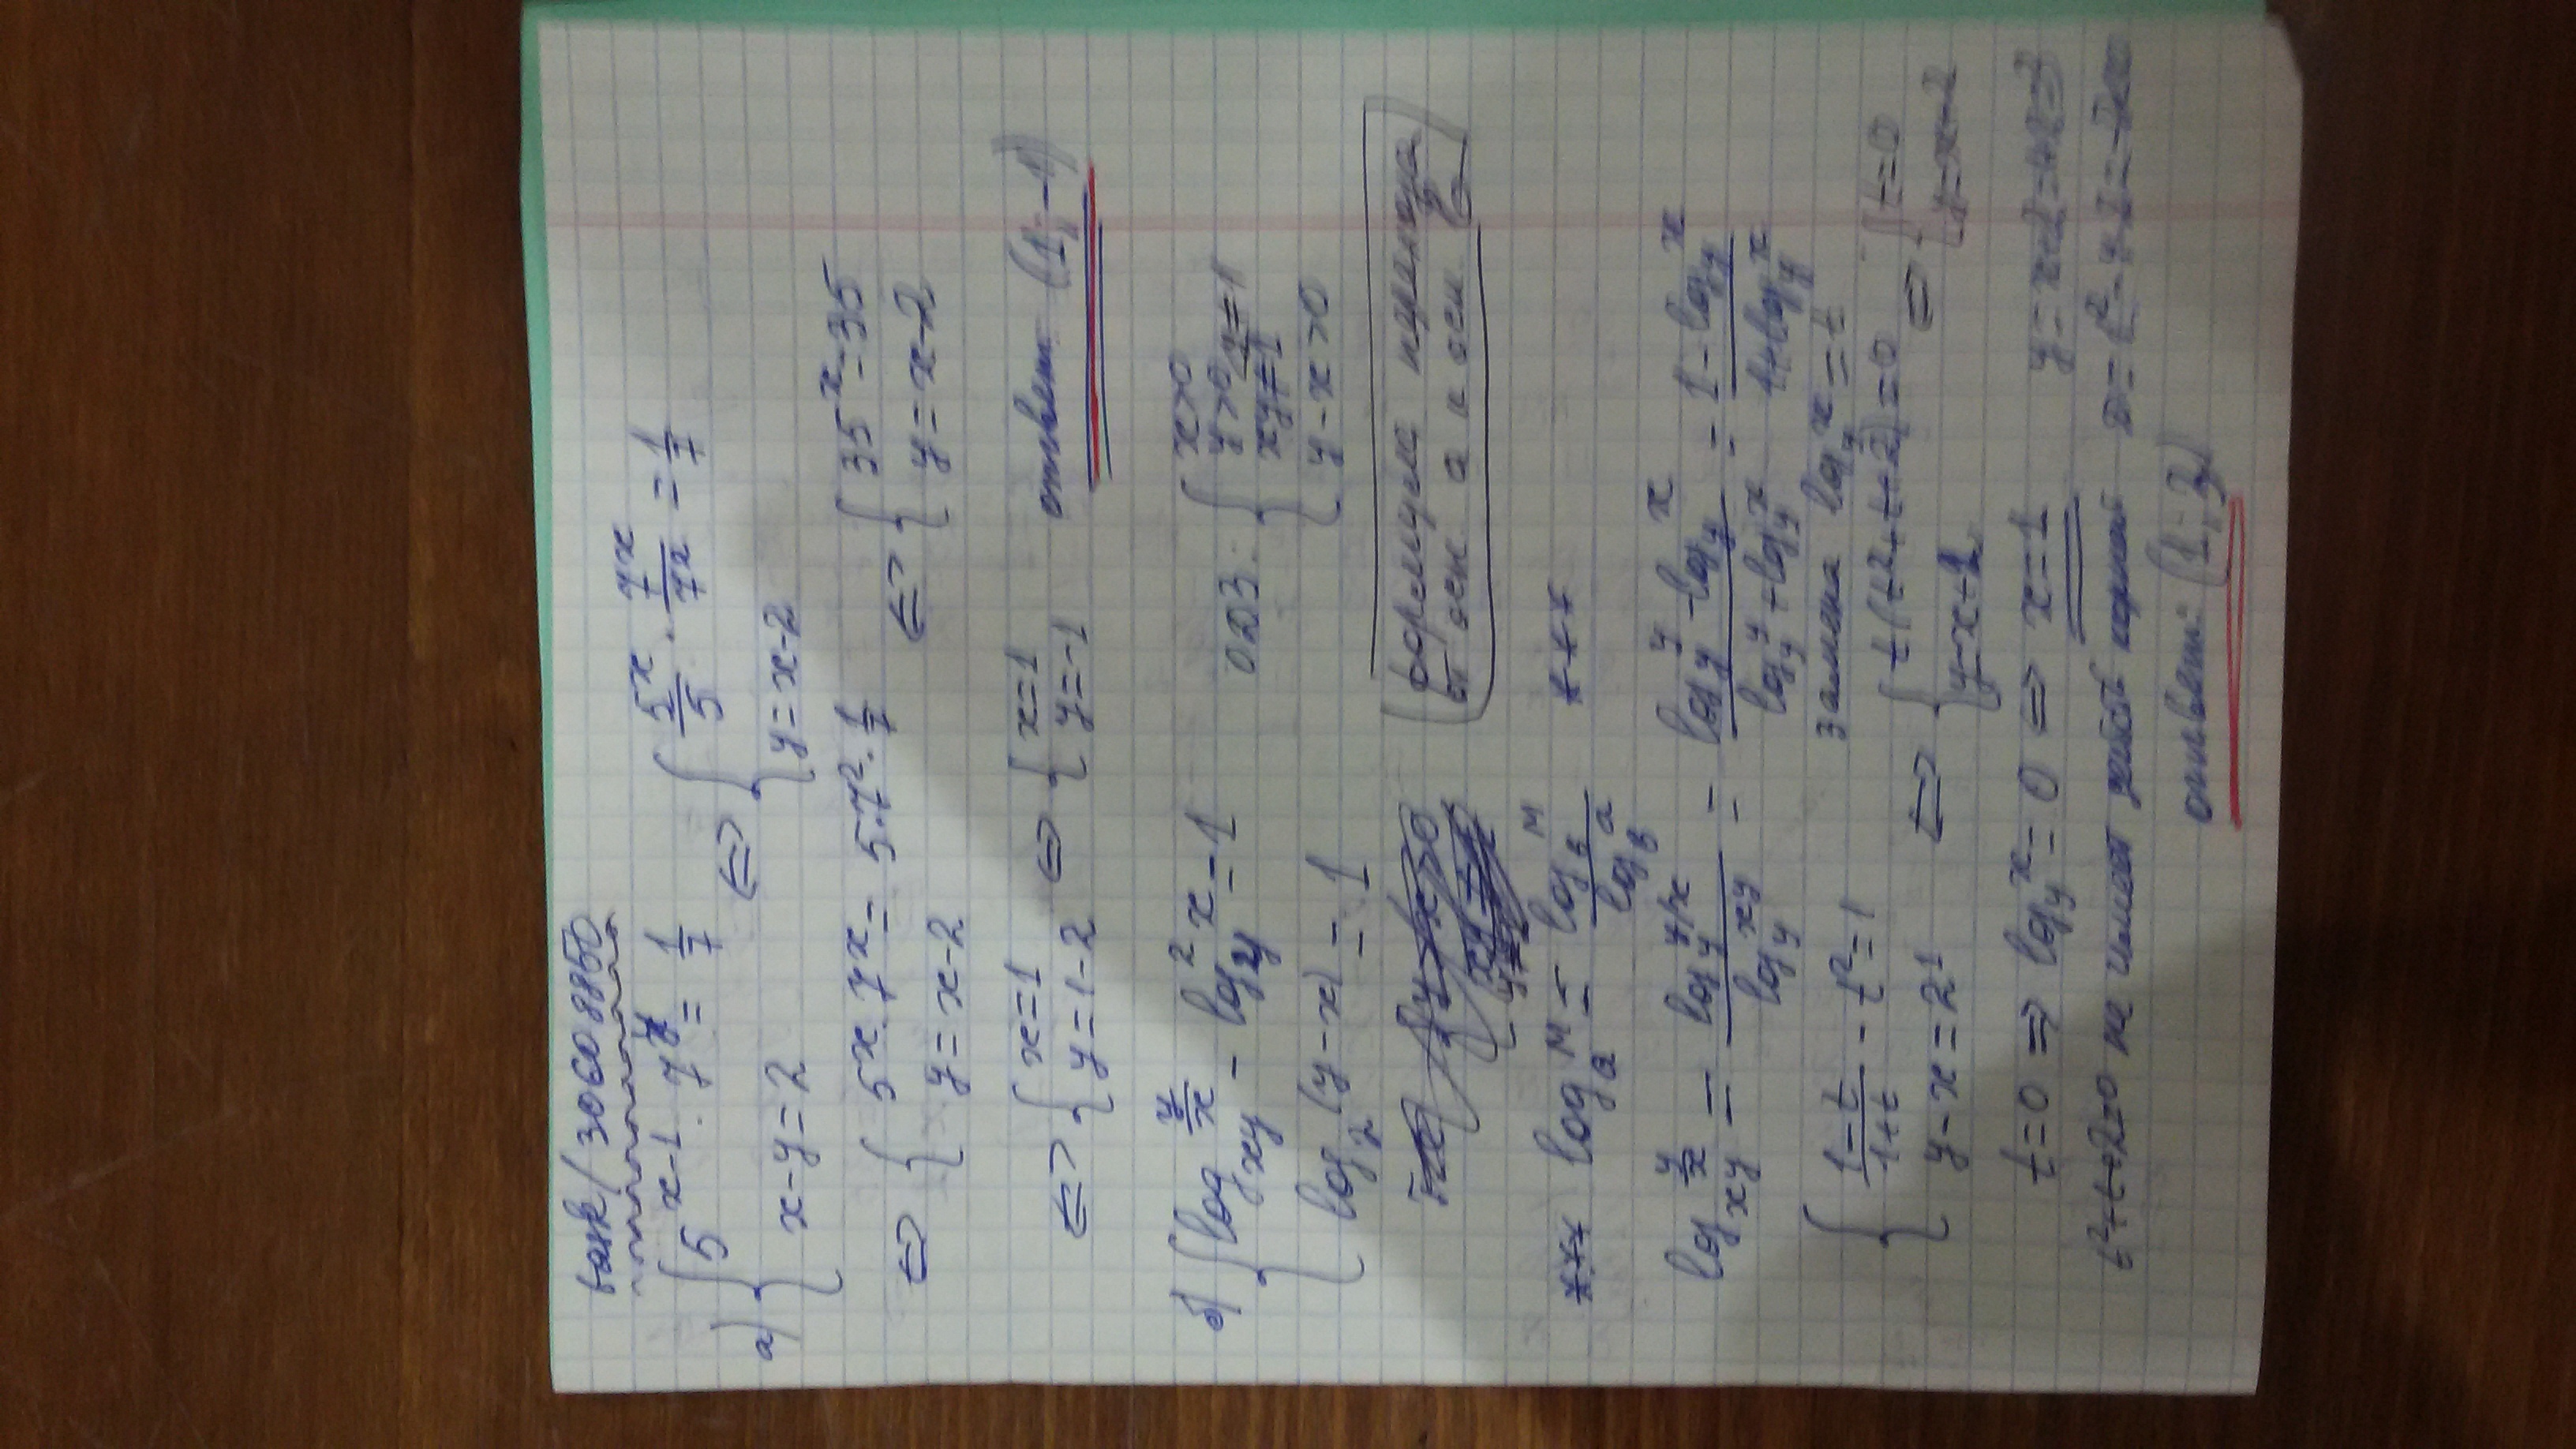 task/30608850
а) { 5^(x-1) · 7^y = 1/7
x-y=2
<=> { 5^x/5 · 7^x/7² = 1/7
y=x-2
<=> { 5^x · 7^x = 5·7²·1/7
y=x-2
<=> { 35^x = 35
y=x-2
<=> { x=1
y=1-2
<=> { x=1
y=-1
ответ (1; -1)
б) { log_xy y/x - log²_y x = 1
log_2 (y-x) = 1
ОДЗ: { x>0
y>0, y≠1
xy≠1
y-x>0
формула перехода
от осн. a к осн. b
*** log_a M = log_b M / log_b a ***
log_xy y/x = log_y y/x / log_y xy = (log_y y - log_y x) / (log_y y + log_y x) = (1 - log_y x) / (1+log_y x)
замена log_y x = t
{ (1-t)/(1+t) - t² = 1
y-x=2¹
<=> { t(t²+t+2)=0
y=x+2
<=> { t=0
y=x+2
t=0 => log_y x = 0 <=> x=1 y=x+2=1+2=3
t²+t+2=0 не имеет действ корней
ответ: (1; 3)